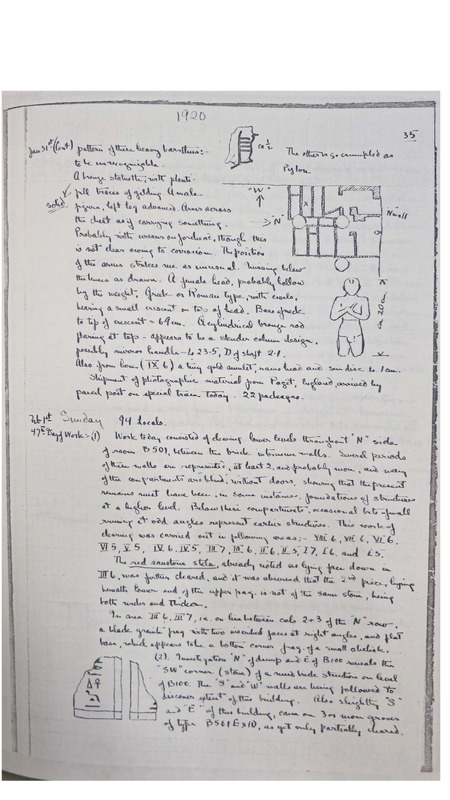 1920
35
Jan 31st (Cont) pattern of these heavy
to be unrecognizable.
A bronze statuette, with
full traces of gilding. A male
figure, left leg advanced Arms across
the chest as if carrying something.
Probably with uraeus on forehead, though this
is not clear owing to corrosion. The position
of the arms strikes me as unusual. Missing below
the knees as drawn. A female head, probably hollow
by the weight, Greek or Roman type, with curls,
bearing a small crescent on top of head. Base of neck
to top of crescent = 6.9 cm. A cylindrical bronze rod
flaring at top - appears to be a slender column design,
possibly mirror handle - L 23.5, D of shaft 2.1.
Also from here (IX 6) a tiny gold amulet, rams head and sun disc L 1 cm.
Shipment of photographic material from Paget, England arrived by
parcel post on special train today. 22 packages.
solid
ca ½
The other is so crumpled as
"W"
"N"
N wall
Feb 1st Sunday 94 Locals.
47th Day of Work - (1) Work today consisted of clearing lower levels throughout "N" side
of room B501, between the brick walls. Several periods
of these walls are represented, at least 2, and probably more, and many
of the compartments are blind, without doors, showing that the present
remains must have been, in some instances, foundations of structures
at a higher level. Below these compartments, occasional bits of wall
running at odd angles represent earlier structures. This work of
clearing was carried out in following areas; - VIII 6, VII 6, VI 6,
VI 5, V 5, IV 6, IV 5, III 7, III 6, II 6, II 5, I 7, I 6, and E 5.
The red sandstone stela, already noted as lying face down in
III 6, was further cleared, and it was observed that the 2nd piece, lying
beneath lower end of the upper frag. is not of the same stone, being
both wider and thicker.
In area III 6, III 7, i.e. on line between cols 2+3 of the "N" row,
a black granite frag. with two inscribed faces at right angles, and flat
base, which appears like a bottom corner frag. of a small obelisk.
(2). Investigation "N" of dump and E of B100 reveals the
"SW" corner (stone) of a mud brick structure on level
of B100. The "S" and "W" walls are being followed to
discover extent of this building. Also slightly "S"
and "E" of this building, came on 3 or more graves
of type B501 E x 10, as yet only partially cleared.